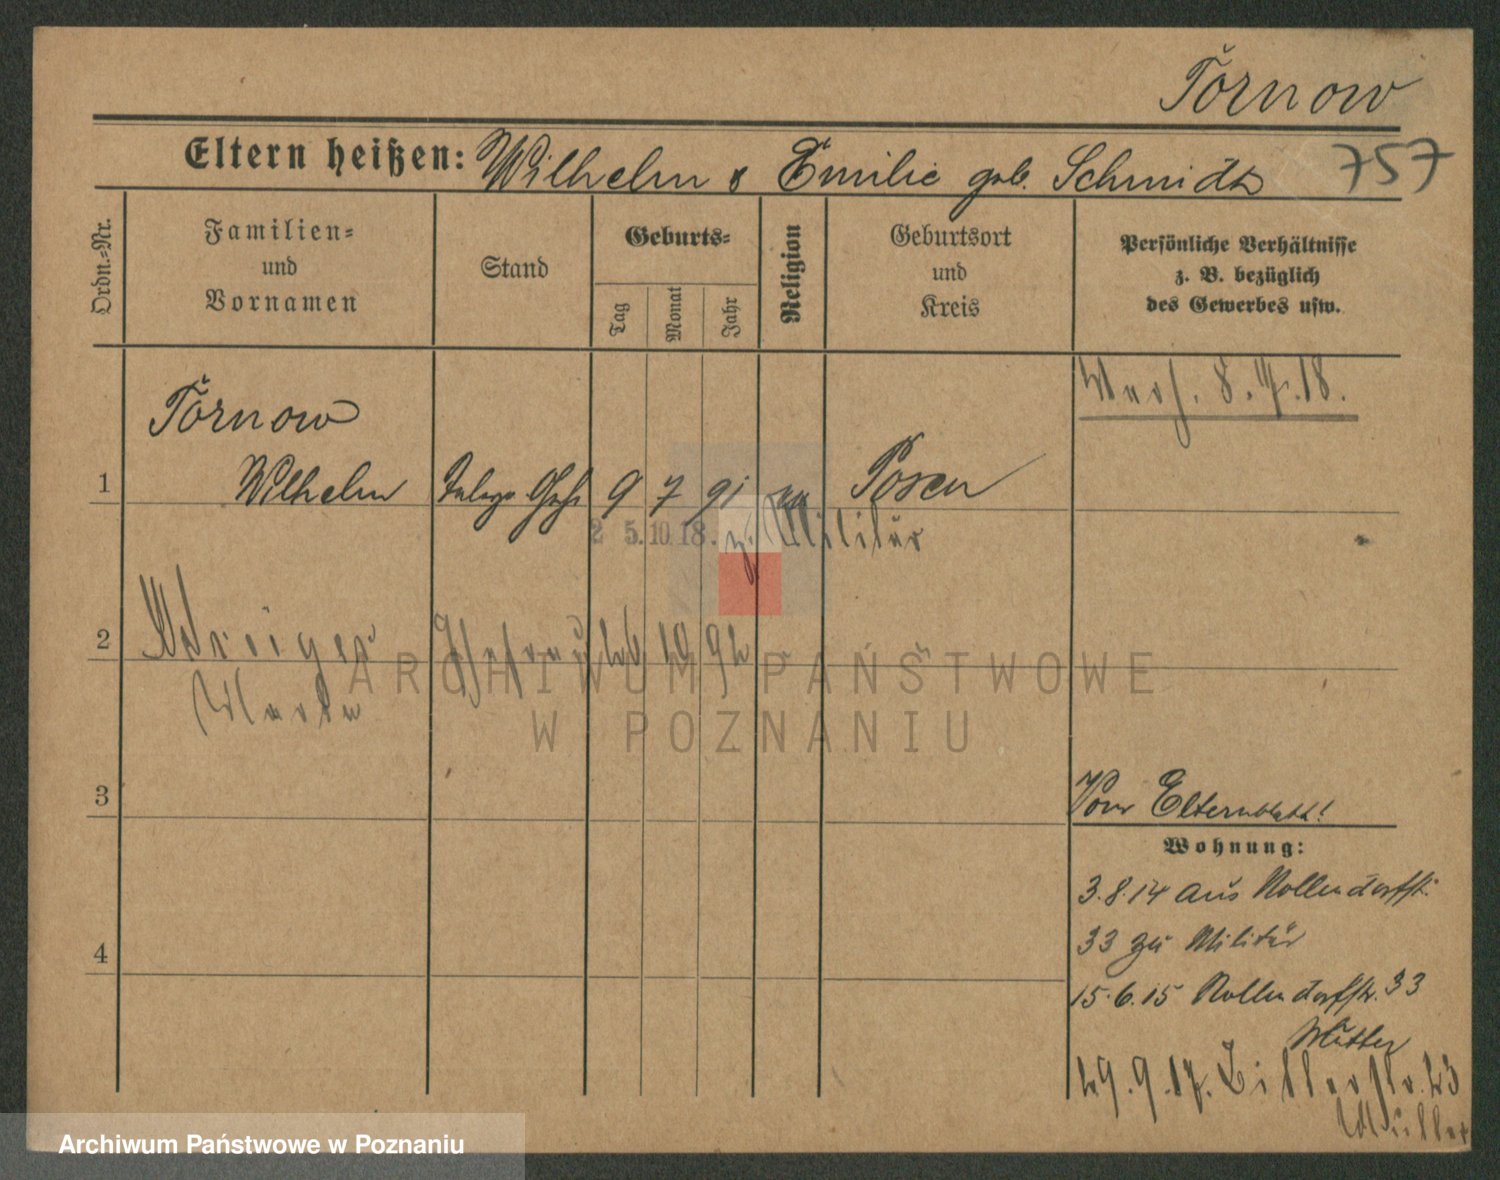 Törnow
Eltern heißen: Wilhelm & Emilie geb. Schmidt
757
Ordn.-Nr.
Familien-
und
Vornamen
Stand
Geburts-
Tag
Monat
Jahr
Religion
Geburtsort
und
Kreis
Persönliche Verhältnisse
z. B. bezüglich
des Gewerbes usw.
18.
Törnow
1 Wilhelm 9 7 91 ev Posen
5.10.18. z. Militär
2
Ehefrau 10 92
Marta
ARCHIWUM PAŃSTWOWE
W POZNANIU
3
Vom Elternblatt!
Wohnung:
3.8.14 aus Nollendorfstr.
33 zu Militär
4
15.6.15 Nollendorfstr. 33
Mutter
29.9.17.
Archiwum Państwowe w Poznaniu